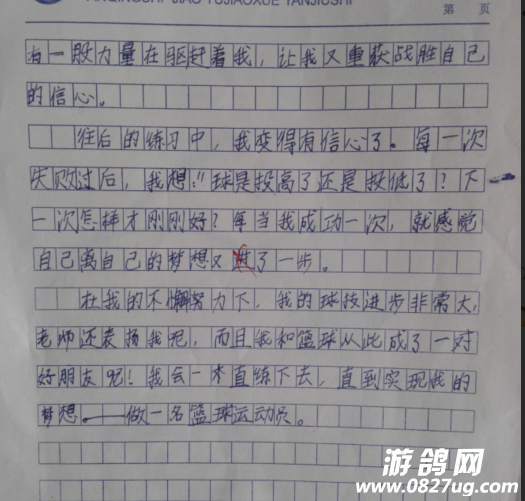 ANQINGSHI JIAO YUJIAOXUE YANJIUSHI
第 页
有一股力量在驱赶着我，让我又重获战胜自己
的信心。
往后的练习中，我变得有信心了。每一次
失败过后，我想：“球是投高了还是投低了？下
一次怎样才刚刚好？每当我成功一次，就感觉
自己离自己的梦想又进了一步。
在我的不懈努力下，我的球技进步非常大，
老师还表扬我呢，而且我和篮球从此成了一对
好朋友呢！我会一直练下去，直到实现我的
梦想。——做一名篮球运动员。
游鸽网
www.0827ug.com